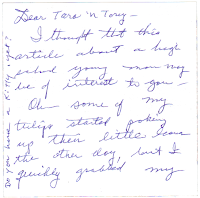 Dear Tara 'n Tony —
I thought tht this
article about a high
school young man may
be of interest to you —
Oh some of my
tulips started poking
up their little leaves
the other day, but I
quickly grabbed my
Do you have a Kitty yet?